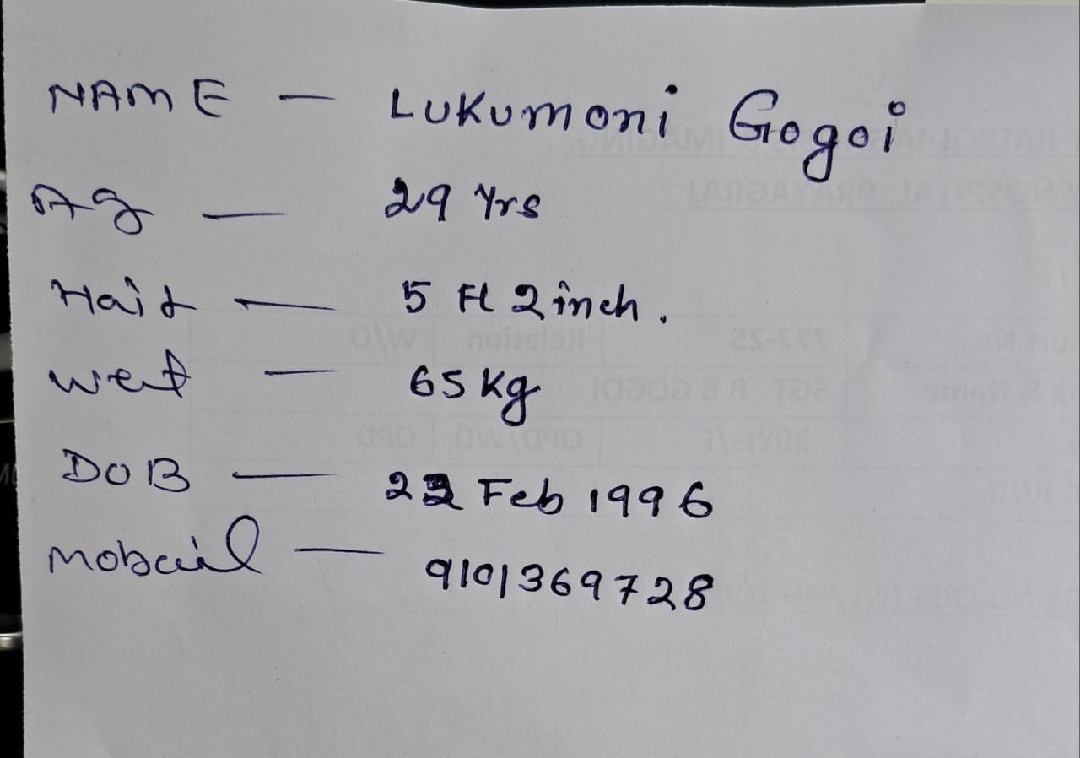 NAME — LUKUMONI Gogoi
Ag — 29 Yrs
Hait — 5 Ft 2 inch.
weit — 65 Kg
DOB — 22 Feb 1996
Mobail — 9101369728